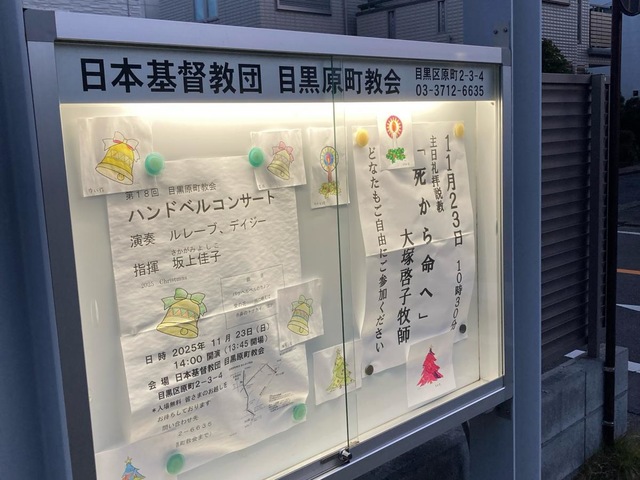 日本基督教団 目黒原町教会
目黒区原町2-3-4
03-3712-6635
第18回 目黒原町教会
ハンドベルコンサート
演奏 ルレーブ、デイジー
さかがみ よしこ
指揮 坂上佳子
2025 Christmas
日時 2025年 11月 23日(日)
14:00 開演(13:45開場)
会場 日本基督教団 目黒原町教会
目黒区原町2-3-4
*入場無料 皆さまのお越しを
お待ちしております
問い合わせ先
2-6635
11月23日 10時30分
主日礼拝説教
「死から命へ」
大塚啓子牧師
どなたもご自由にご参加ください